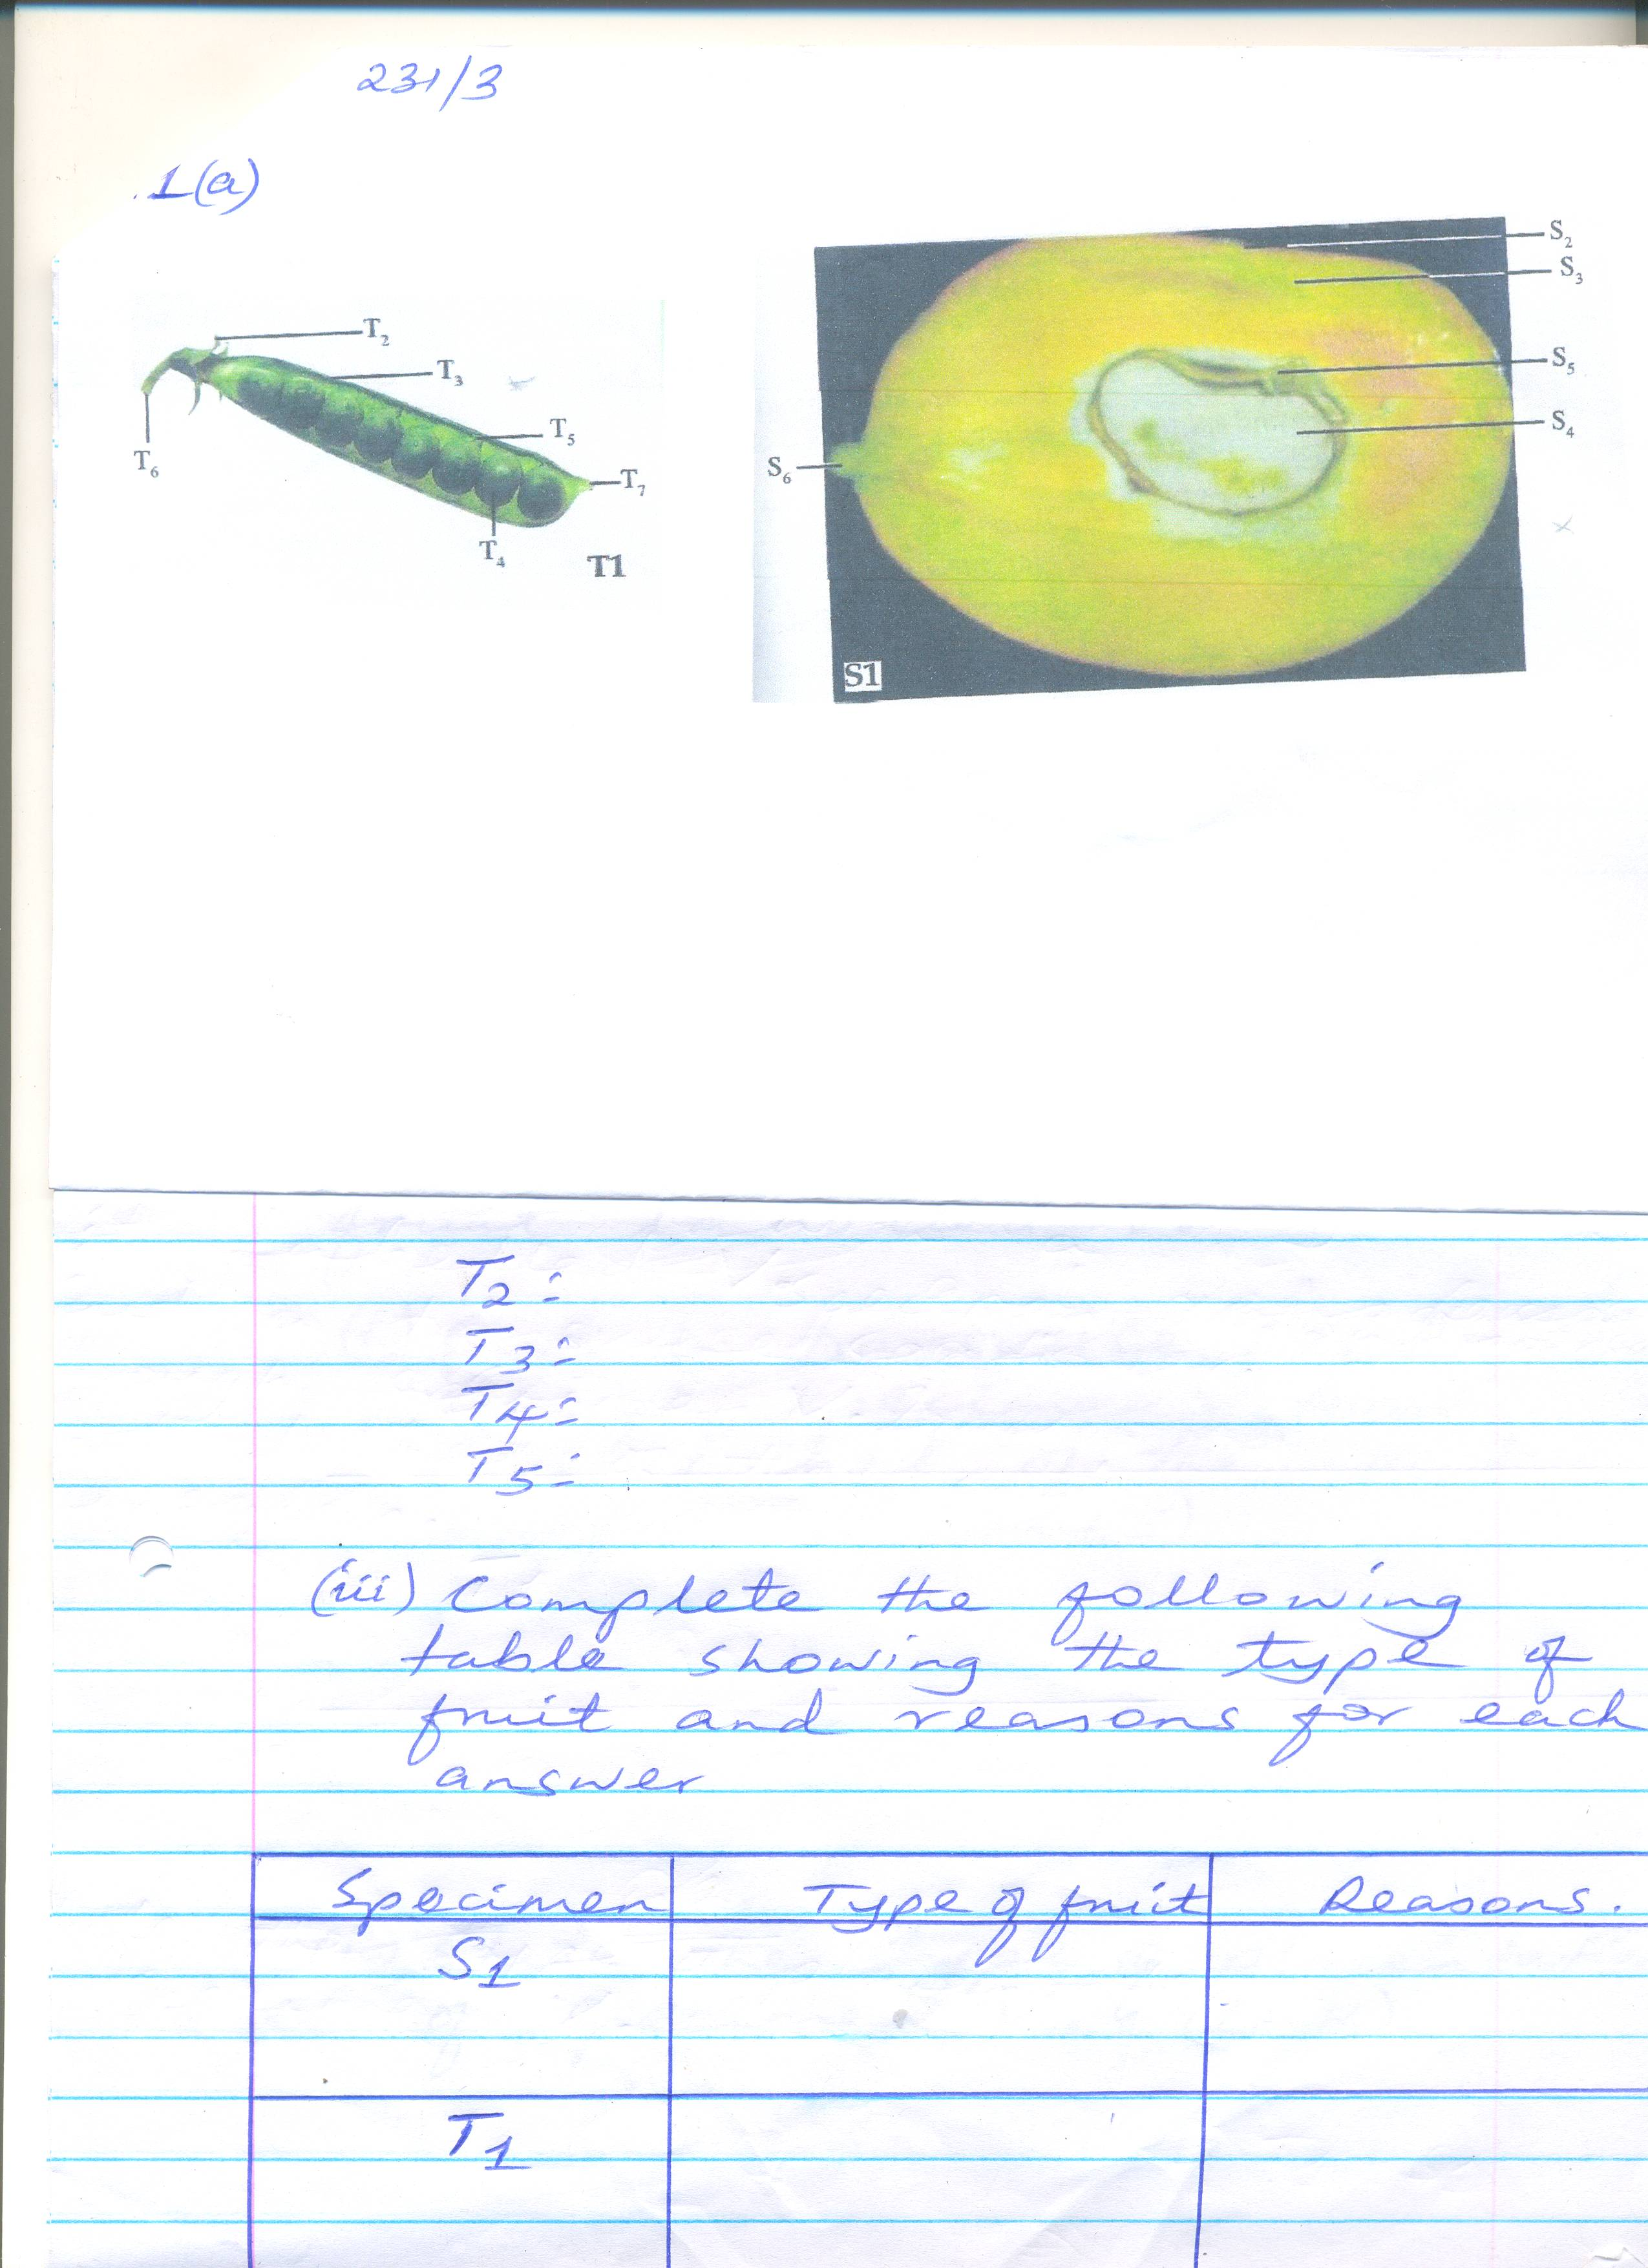 231/3
1(a)
T2
T3
T5
T6
T7
T4
T1
S2
S3
S5
S4
S6
S1
T2 :
T3 :
T4 :
T5 :
(iii) Complete the following
table showing the type of
fruit and reasons for each
answer
Specimen Type of fruit Reasons.
S1
T1